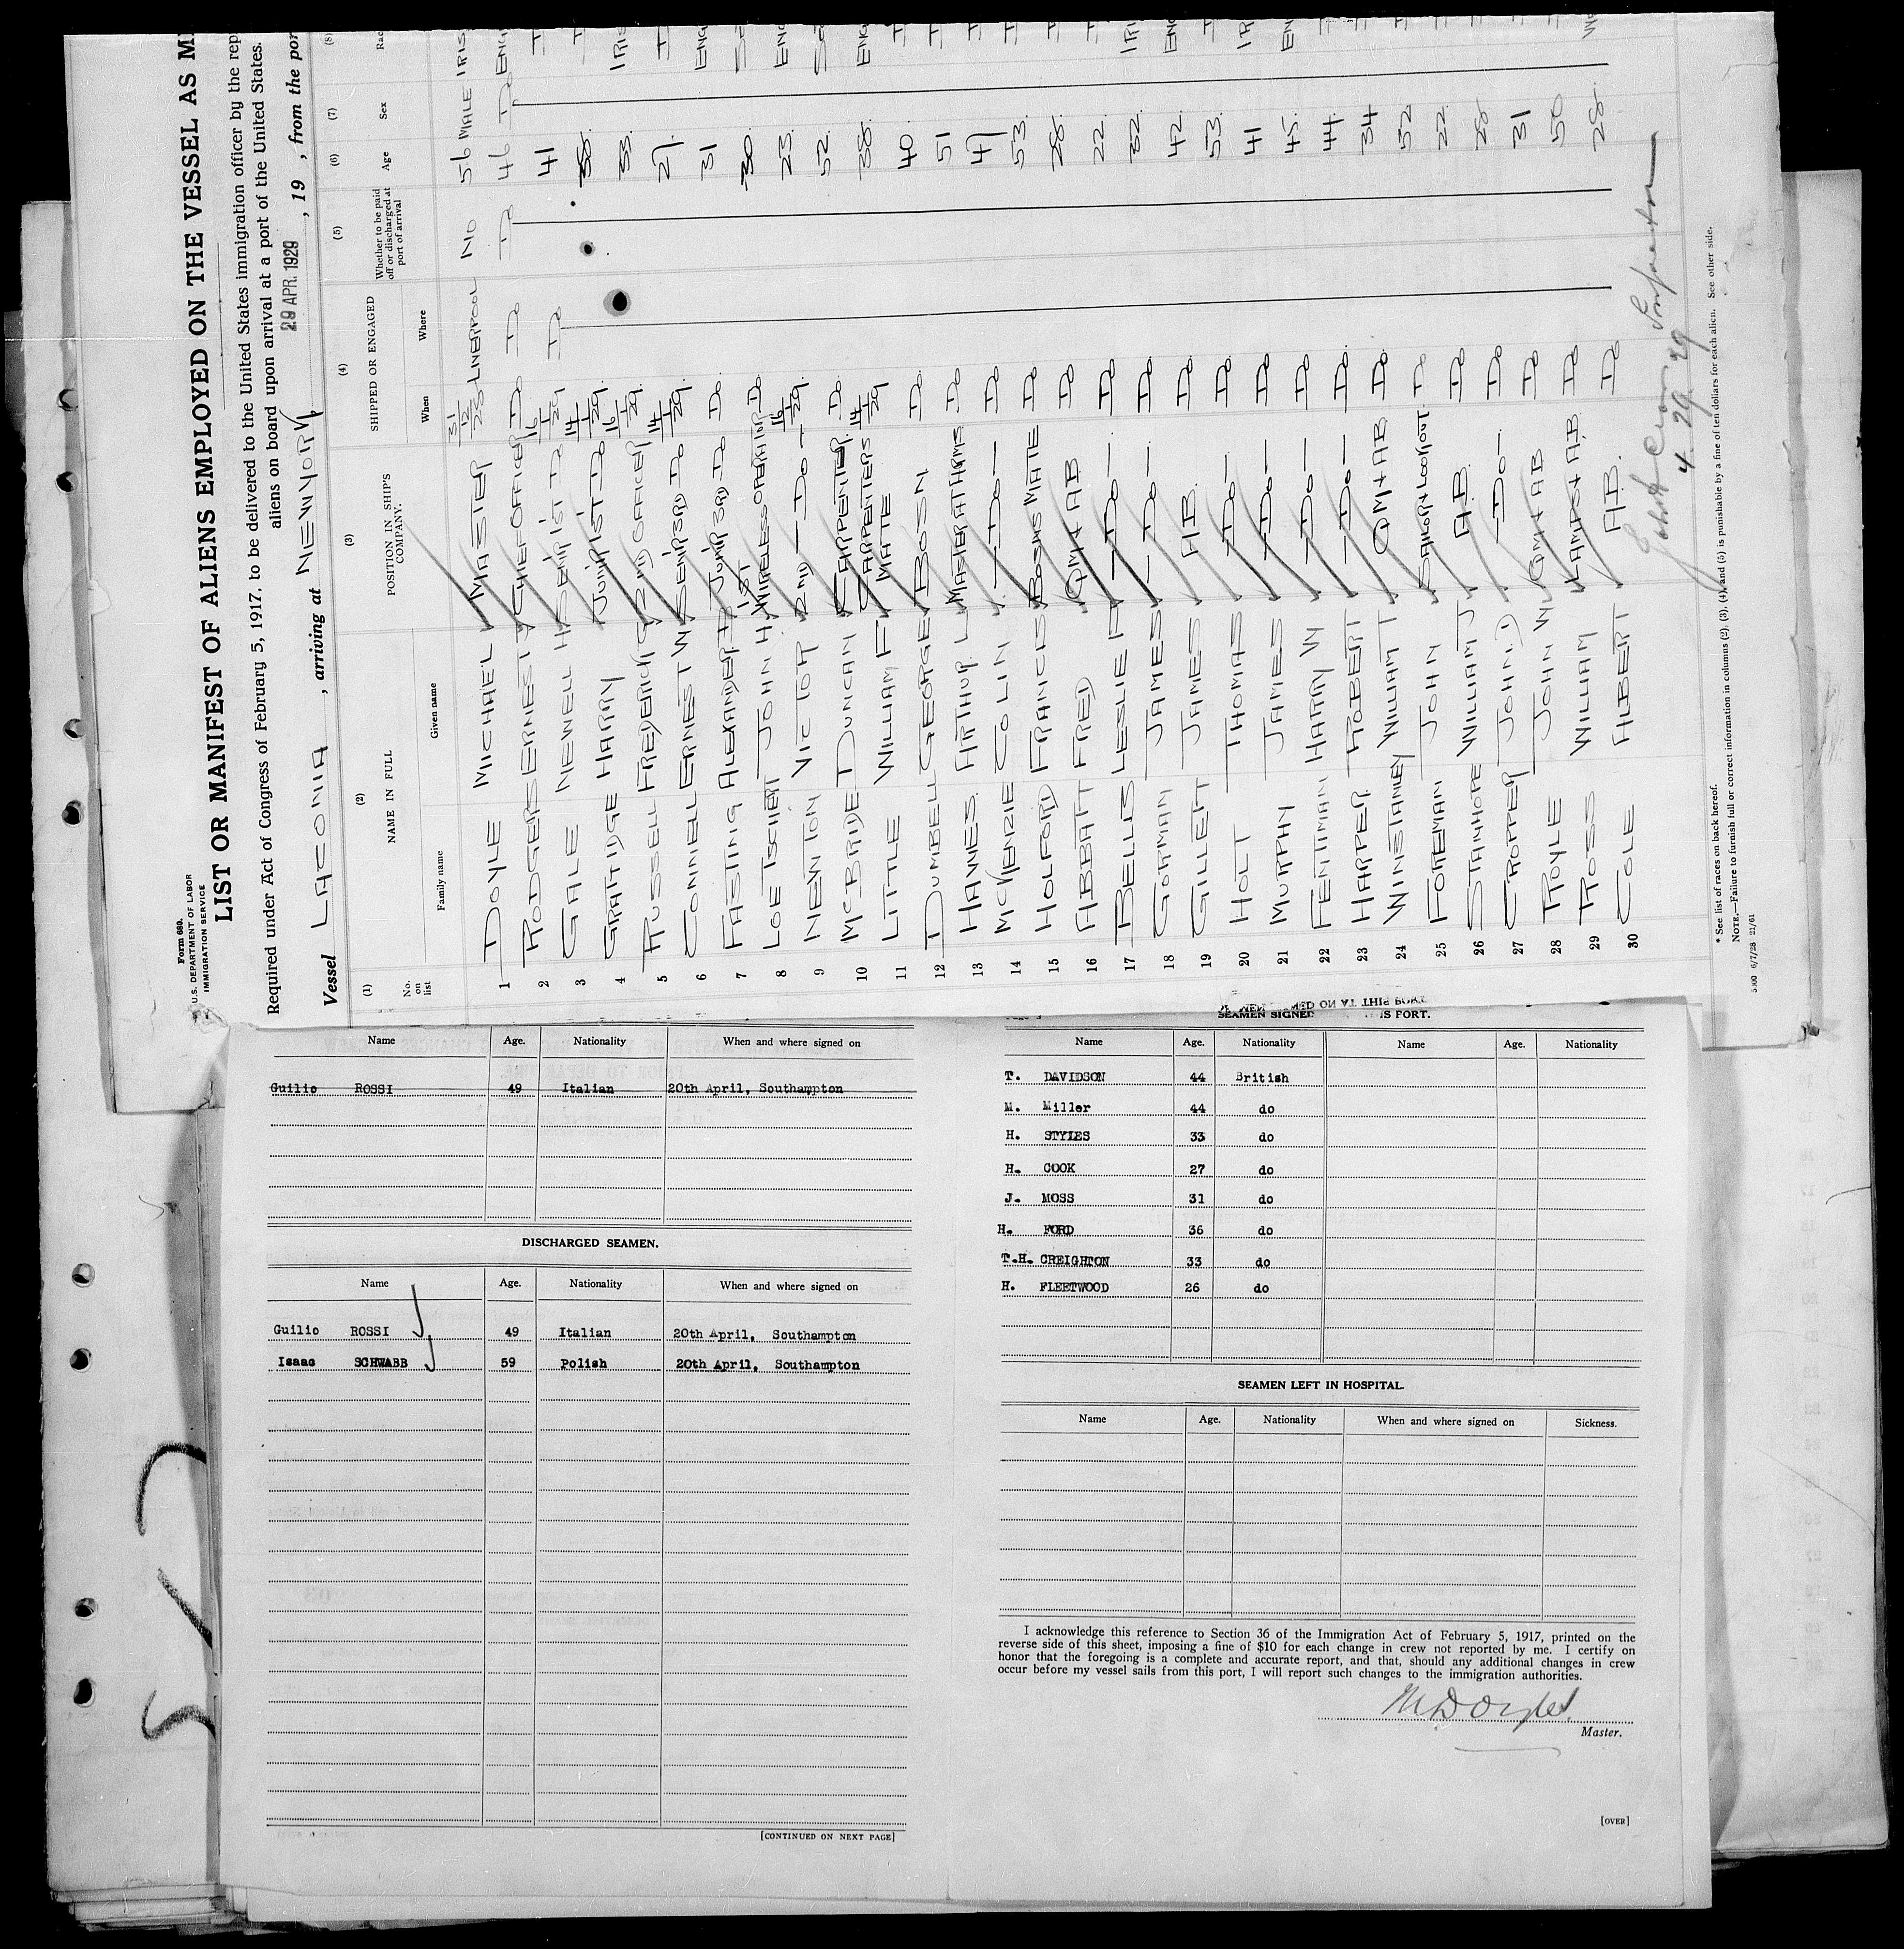 Form 689.
U.S. DEPARTMENT OF LABOR
IMMIGRATION SERVICE
LIST OR MANIFEST OF ALIENS EMPLOYED ON THE VESSEL AS
Required under Act of Congress of February 5, 1917, to be delivered to the United States immigration officer by the
aliens on board upon arrival at a port of the United States.
Vessel LACONIA, arriving at NEW YORK, 29 APR. 1929, 19 , from the
(1) (2) (3) (4) (5) (6) (7) (8)
No. on list NAME IN FULL POSITION IN SHIP'S COMPANY. SHIPPED OR ENGAGED Whether to be paid off or discharged at port of arrival Age Sex
Family name Given name When Where
1 DOYLE MICHAEL MASTER 31/12/28 LIVERPOOL NO 56 MALE
2 RODGERS ERNEST CHIEF OFFICER Do Do Do 46 Do
3 GALE NEWELL H SENR 1ST Do 16/1/29 Do 41
4 GRATTIDGE HARRY JUNR 1ST Do 14/1/29 38
5 RUSSELL FREDERICK G 2ND OFFICER 16/1/29 33
6 CONNELL ERNEST W SENR 3RD Do 14/1/29 27
7 FASTING ALEXANDER JUNR 3RD Do Do 31
8 LOE TSCHERT JOHN H 1ST WIRELESS OPERATOR Do 30
9 NEWTON VICTOR 2ND -Do- 16/1/29 23
10 McBRIDE DUNCAN CARPENTER Do 52
11 LITTLE WILLIAM F CARPENTERS MATE 14/1/29 38
12 DUMBELL GEORGE BOSN Do 40
13 HAWES ARTHUR L MASTER AT ARMS Do 51
14 McKENZIE COLIN -Do- Do 47
15 HOLFORD FRANCIS BOSUNS MATE Do 53
16 ABBATT FRED QM + AB Do 28
17 BELLIS LESLIE -Do- Do 22
18 GORMAN JAMES -Do- Do 32
19 GILLETT JAMES AB. Do 42
20 HOLT THOMAS -Do- Do 53
21 MURPHY JAMES -Do- Do 41
22 FENTIMAN HARRY W -Do- Do 45
23 HARPER ROBERT -Do- Do 44
24 WINSTANLEY WILLIAM T QM + AB Do 34
25 FOREMAN JOHN SAILOR + LOOKOUT Do 52
26 STANHOPE WILLIAM J AB Do 22
27 CROPPER JOHN D -Do- Do 28
28 ROYLE JOHN W QM + AB Do 31
29 ROSS WILLIAM LAMPS + AB Do 50
30 COLE ALBERT AB. Do 28
4 29 29
* See list of races on back hereof.
NOTE.—Failure to furnish full or correct information in columns (2), (3), (4), and (5) is punishable by a fine of ten dollars for each alien. See other side.
Name Age. Nationality When and where signed on
Guilio ROSSI 49 Italian 20th April, Southampton
DISCHARGED SEAMEN.
Name Age. Nationality When and where signed on
Guilio ROSSI 49 Italian 20th April, Southampton
Isaac SCHWABB 59 Polish 20th April, Southampton
[CONTINUED ON NEXT PAGE]
Name Age. Nationality Name Age. Nationality
T. DAVIDSON 44 British
M. Miller 44 do
H. STYLES 33 do
H. COOK 27 do
J. MOSS 31 do
H. FORD 36 do
T.H. CREIGHTON 33 do
H. FLEETWOOD 26 do
SEAMEN LEFT IN HOSPITAL.
Name Age. Nationality When and where signed on Sickness.
I acknowledge this reference to Section 36 of the Immigration Act of February 5, 1917, printed on the
reverse side of this sheet, imposing a fine of $10 for each change in crew not reported by me. I certify on
honor that the foregoing is a complete and accurate report, and that, should any additional changes in crew
occur before my vessel sails from this port, I will report such changes to the immigration authorities.
M Doyle
Master.
[OVER]